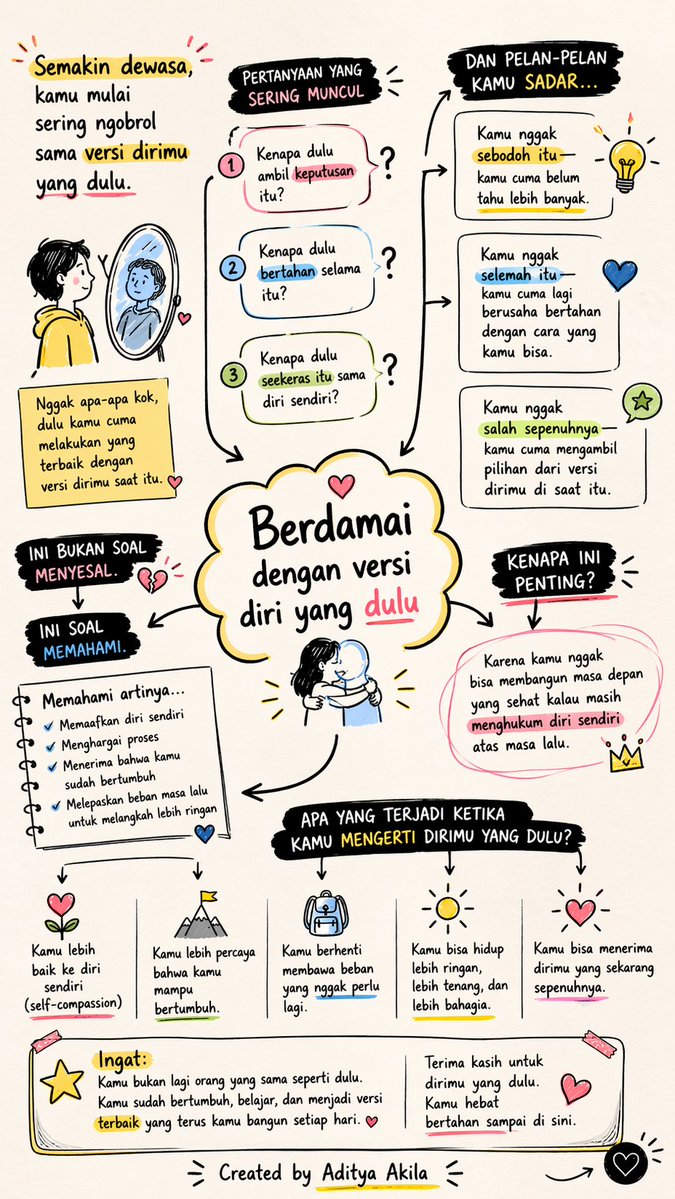 Semakin dewasa,
kamu mulai
sering ngobrol
sama versi dirimu
yang dulu.
Nggak apa-apa kok,
dulu kamu cuma
melakukan yang
terbaik dengan
versi dirimu saat itu.
PERTANYAAN YANG
SERING MUNCUL
1
Kenapa dulu
ambil keputusan
itu?
?
2
Kenapa dulu
bertahan selama
itu?
?
3
Kenapa dulu
seekeras itu sama
diri sendiri?
?
DAN PELAN-PELAN
KAMU SADAR...
Kamu nggak
sebodoh itu—
kamu cuma belum
tahu lebih banyak.
Kamu nggak
selemah itu—
kamu cuma lagi
berusaha bertahan
dengan cara yang
kamu bisa.
Kamu nggak
salah sepenuhnya—
kamu cuma mengambil
pilihan dari versi
dirimu di saat itu.
Berdamai
dengan versi
diri yang dulu
INI BUKAN SOAL
MENYESAL.
INI SOAL
MEMAHAMI.
Memahami artinya...
Memaafkan diri sendiri
Menghargai proses
Menerima bahwa kamu
sudah bertumbuh
Melepaskan beban masa lalu
untuk melangkah lebih ringan
KENAPA INI
PENTING?
Karena kamu nggak
bisa membangun masa depan
yang sehat kalau masih
menghukum diri sendiri
atas masa lalu.
APA YANG TERJADI KETIKA
KAMU MENGERTI DIRIMU YANG DULU?
Kamu lebih
baik ke diri
sendiri
(self-compassion)
Kamu lebih percaya
bahwa kamu
mampu
bertumbuh.
Kamu berhenti
membawa beban
yang nggak perlu
lagi.
Kamu bisa hidup
lebih ringan,
lebih tenang, dan
lebih bahagia.
Kamu bisa menerima
dirimu yang sekarang
sepenuhnya.
Ingat:
Kamu bukan lagi orang yang sama seperti dulu.
Kamu sudah bertumbuh, belajar, dan menjadi versi
terbaik yang terus kamu bangun setiap hari.
Terima kasih untuk
dirimu yang dulu.
Kamu hebat
bertahan sampai di sini.
Created by Aditya Akila